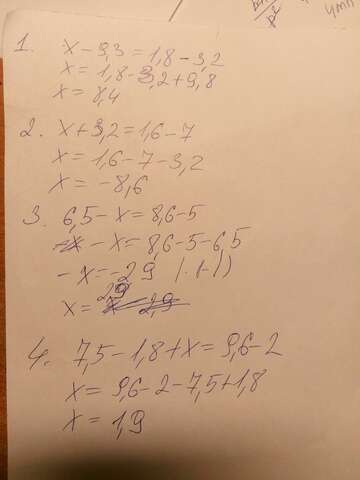 1. x - 9,3 = 1,8 - 3,2
x = 1,8 - 3,2 + 9,8
x = 8,4
2. x + 3,2 = 1,6 - 7
x = 1,6 - 7 - 3,2
x = -8,6
3. 6,5 - x = 8,6 - 5
- x = 8,6 - 5 - 6,5
- x = -2,9 | · (-1)
x = 2,9
4. 7,5 - 1,8 + x = 9,6 - 2
x = 9,6 - 2 - 7,5 + 1,8
x = 1,9